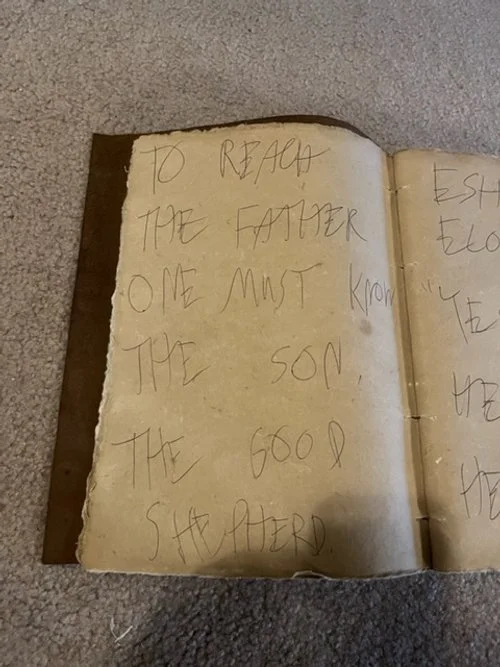 TO REACH
THE FATHER
ONE MUST KNOW
THE SON,
THE GOOD
SHEPHERD.
ESH
ELO
"YE
HE
HE